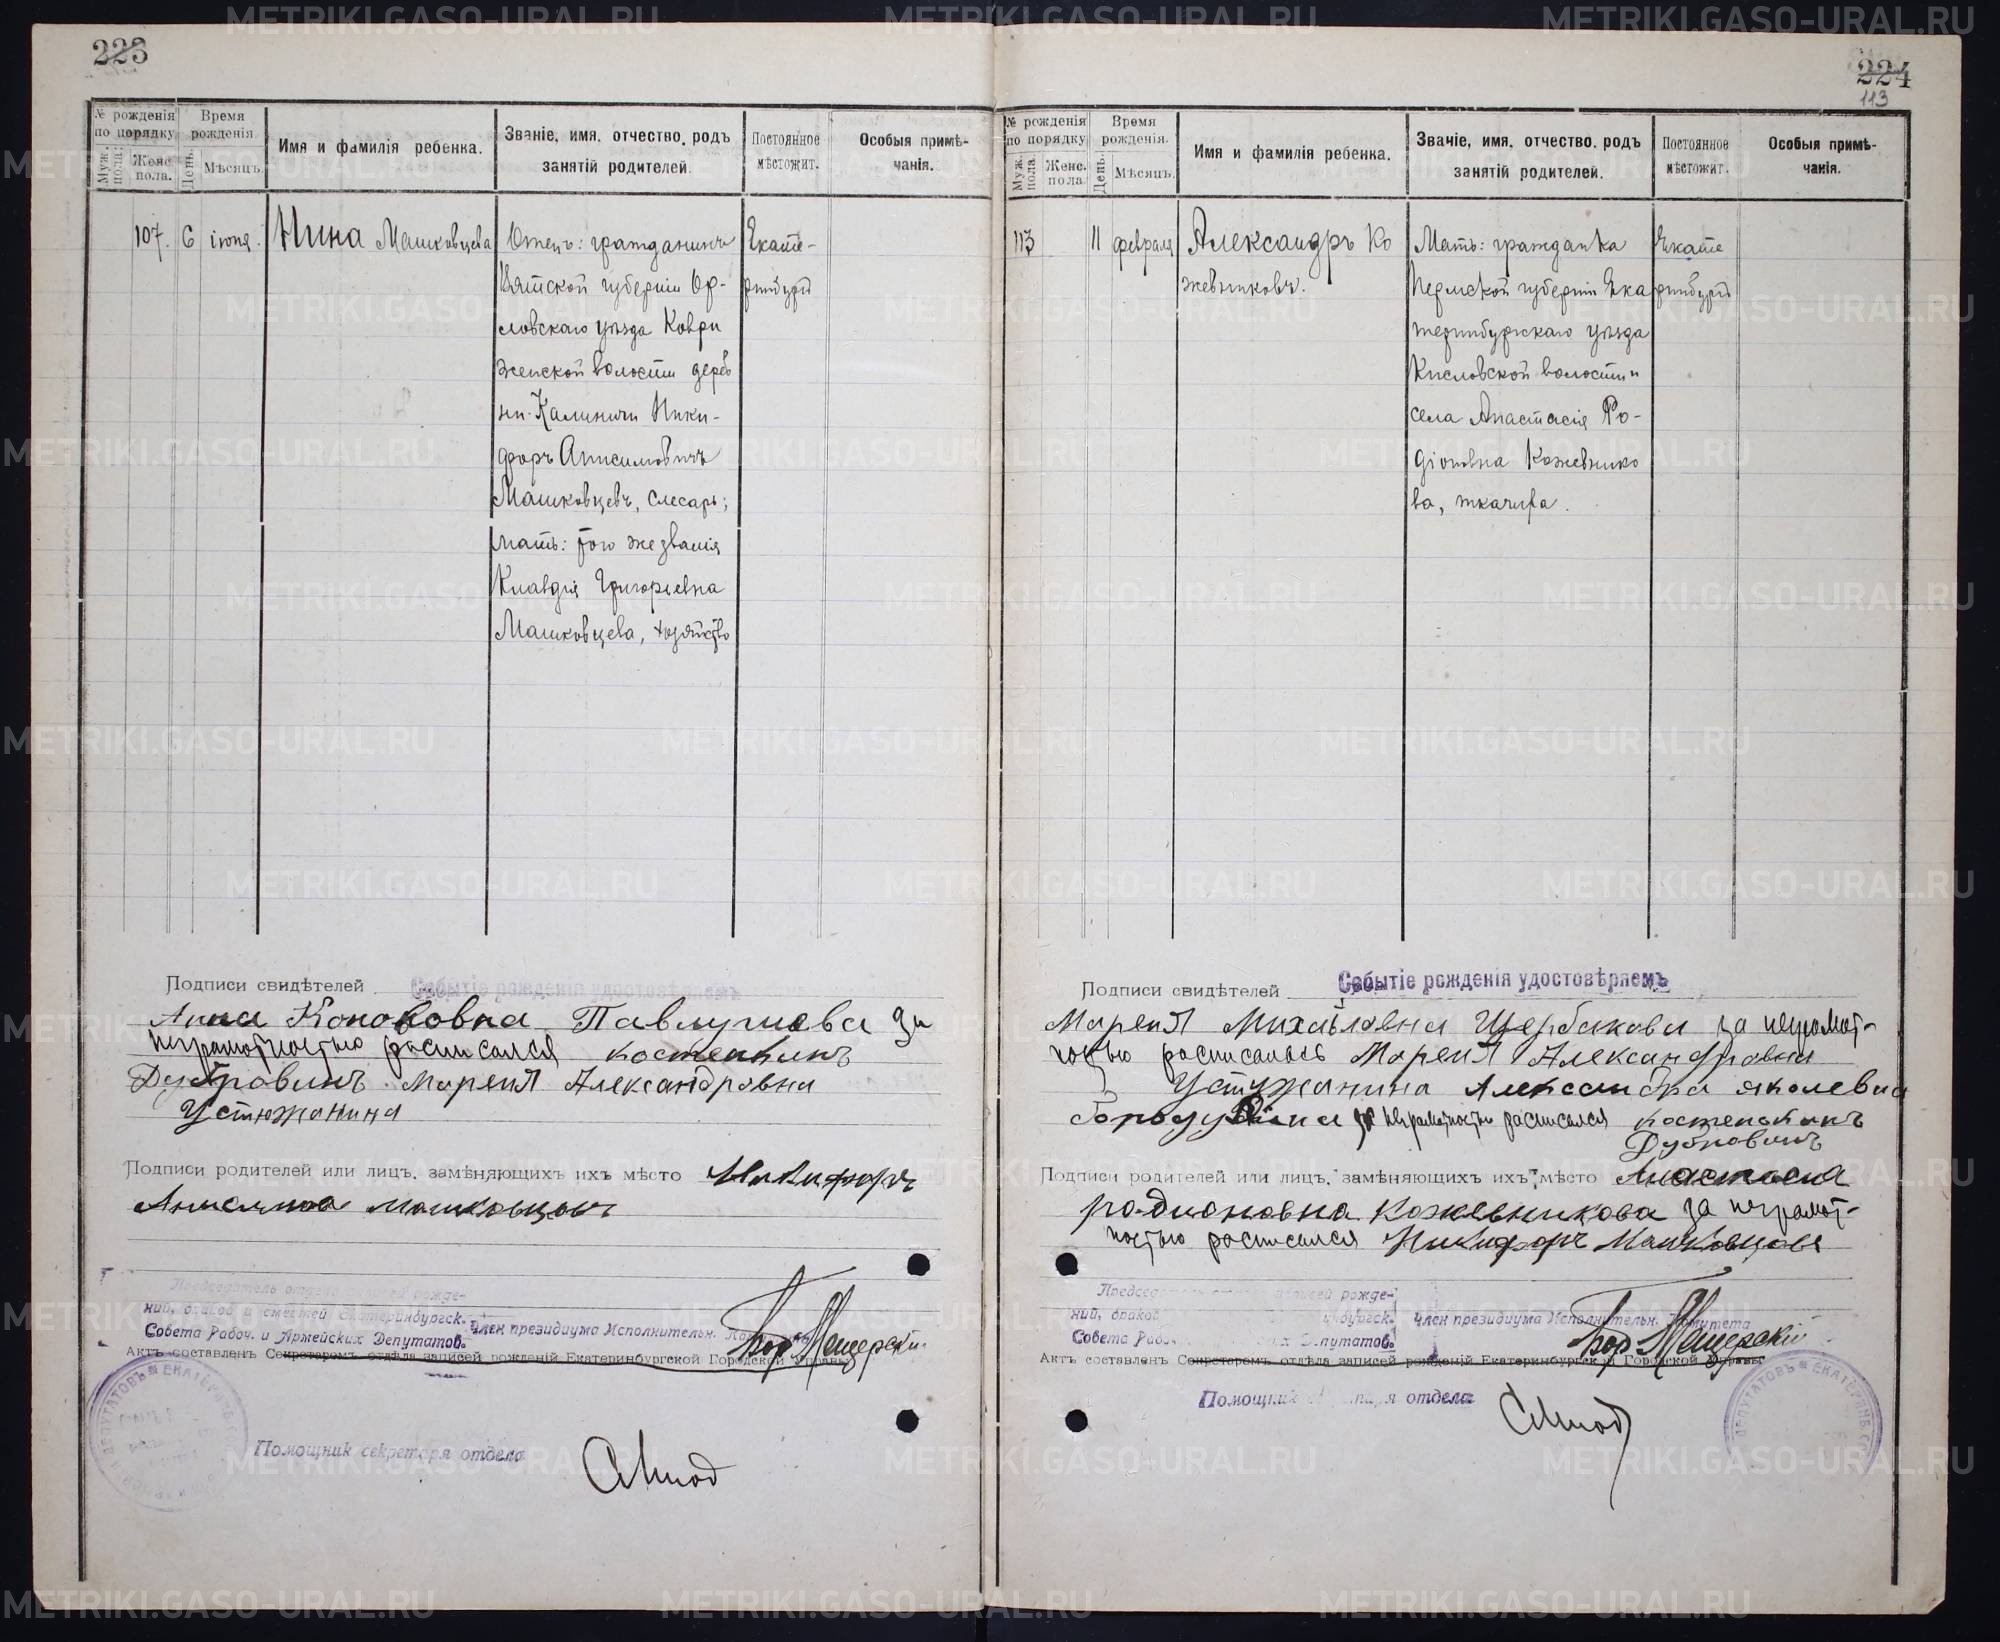 223
№ рожденія по порядку
Муж. пола.
Женс. пола.
Время рожденія
День.
Мѣсяцъ.
Имя и фамилія ребенка.
Званіе, имя, отчество, родъ занятій родителей.
Постоянное мѣстожит.
Особыя примѣчанія.
107.
6
іюня.
Нина Машковцева
Отецъ: гражданинъ
Вятской губерніи Ор-
ловскаго уѣзда Коври
женской волости дерев
ни Калиничи Ники-
форъ Анисимовичъ
Машковцевъ, слесарь;
мать: того же званія
Клавдія Григорьевна
Машковцева, хозяйство
Екате-
ринбургъ
Подписи свидѣтелей
Событіе рожденія удостовѣряемъ
Анна Павлушева за
неграмотностью росписался костенькинъ
Дубровинъ Мария Александровна
Устюжанина
Подписи родителей или лицъ, замѣняющихъ ихъ мѣсто Никифоръ
Анисимовъ Машковцовъ
Предсѣдатель отдела записей рожде-
ний, браков и смертей Екатеринбургск.
Совета Рабоч. и Армейских Депутатов.
Член президиума Исполнительн. Комитета
Актъ составленъ Секретаремъ отдѣла записей рожденій Екатеринбургской Городской Управы
Помощник секретаря отдела
224
113
№ рожденія по порядку
Муж. пола.
Женс. пола
Время рожденія.
День.
Мѣсяцъ.
Имя и фамилія ребенка.
Званіе, имя, отчество, родъ занятій родителей.
Постоянное мѣстожит.
Особыя примѣчанія.
113
11
февраля
Александръ Ко
жевниковъ.
Мать: гражданка
Пермской губерніи Ека
теринбургскаго уѣзда
Кисловской волости и
села Анастасія Ро-
діоновна Кожевнико
ва, ткачиха.
Екате
ринбургъ
Подписи свидѣтелей
Событіе рожденія удостовѣряемъ
Мария Михайловна Щербакова за неграмот-
ностью росписалась Мария Александровна
Устужанина Александра яколевна
за неграмотностью росписался костенькинъ
Дубровинъ
Подписи родителей или лицъ, замѣняющихъ ихъ мѣсто Анастасия
родионовна Кожевникова за неграмот-
ностью росписался Никифоръ Машковцовъ
рожде-
ний, браков
Совета Рабоч. Депутатов.
Член президиума Исполнительн. Комитета
Актъ составленъ Секретаремъ отдѣла записей рожденій Екатеринбургской Городской Управы
Помощник отдела
METRIKI.GASO-URAL.RU